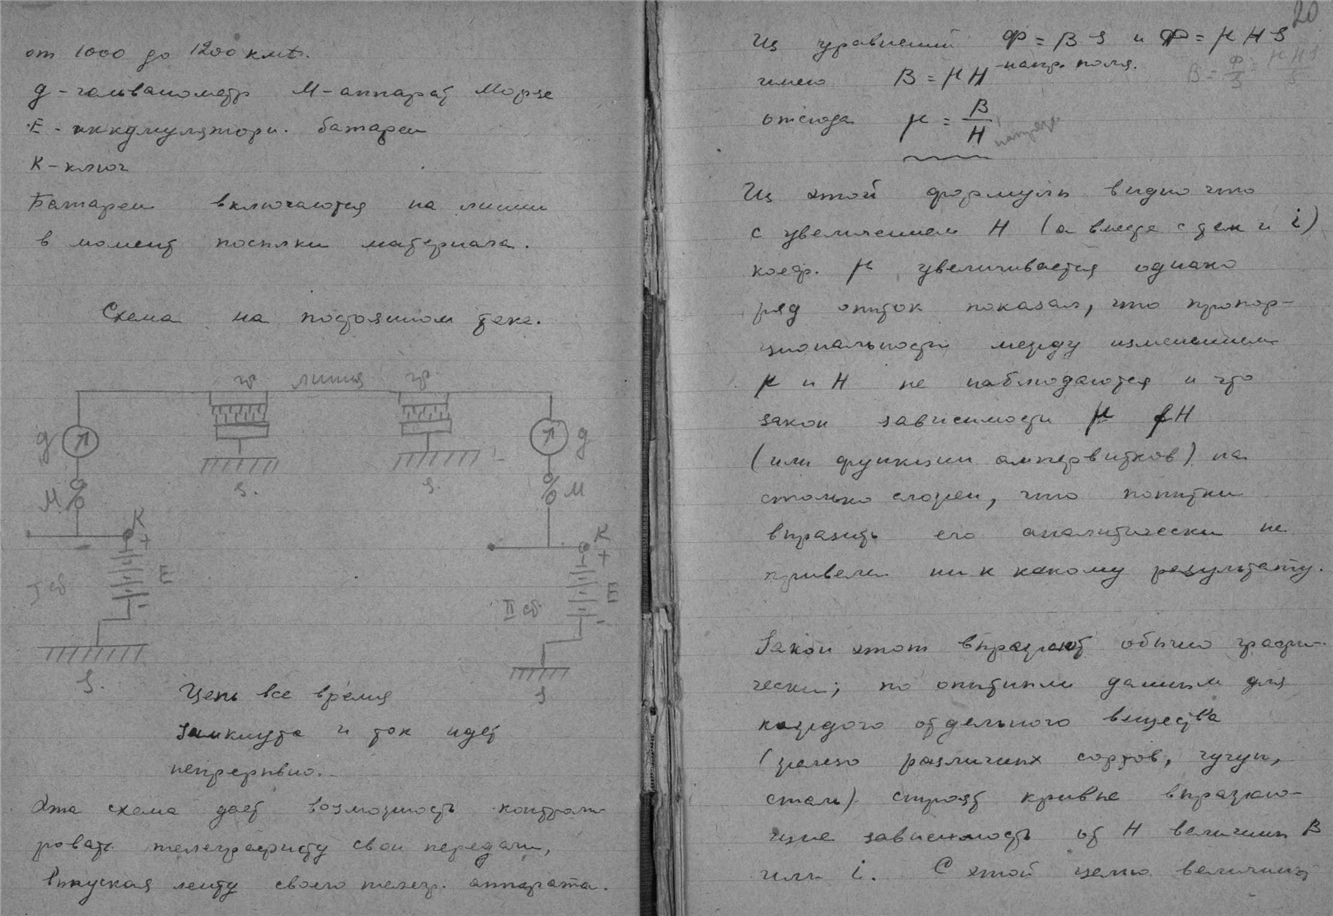 от 1000 до 1200 клт.
g - гальванометр М - аппарат Морзе
E - аккумулятори. батареи
К - ключ
Батареи включаются на линии
в момент посылки материала.
Схема на постоянном токе.
гр. линия гр.
g g
М М
S. S.
К К
+ +
E E
I сб II сб
- -
S. S
Цепь все время
замкнута и ток идет
непрерывно.
Эта схема дает возможность контроли
ровать телеграфисту свои передачи,
выпуская ленту своего телегр. аппарата.
20
Из уравнений Ф = B S и Ф = μ H S
имею B = μ H - напр. поля. B = Ф/S = μHS/S
отсюда μ = B/H
Из этой формулы видно что
с увеличением H (а вместе с тем и i)
коэф. μ увеличивается однако
ряд опыток показал, что пропор-
циональности между изменением
μ и H не наблюдаются и что
закон зависимости μ fH
(или функции ампервитков) на
столько сложен, что попытки
выразить его аналитически не
привели ни к какому результату.
Закон этот выражают обычно графи-
чески; по опытным данным для
каждого отдельного вещества
(железо различных сортов, чугун,
сталь) строят кривые выражаю-
щие зависимость от H величины B
или i. С этой целью величины